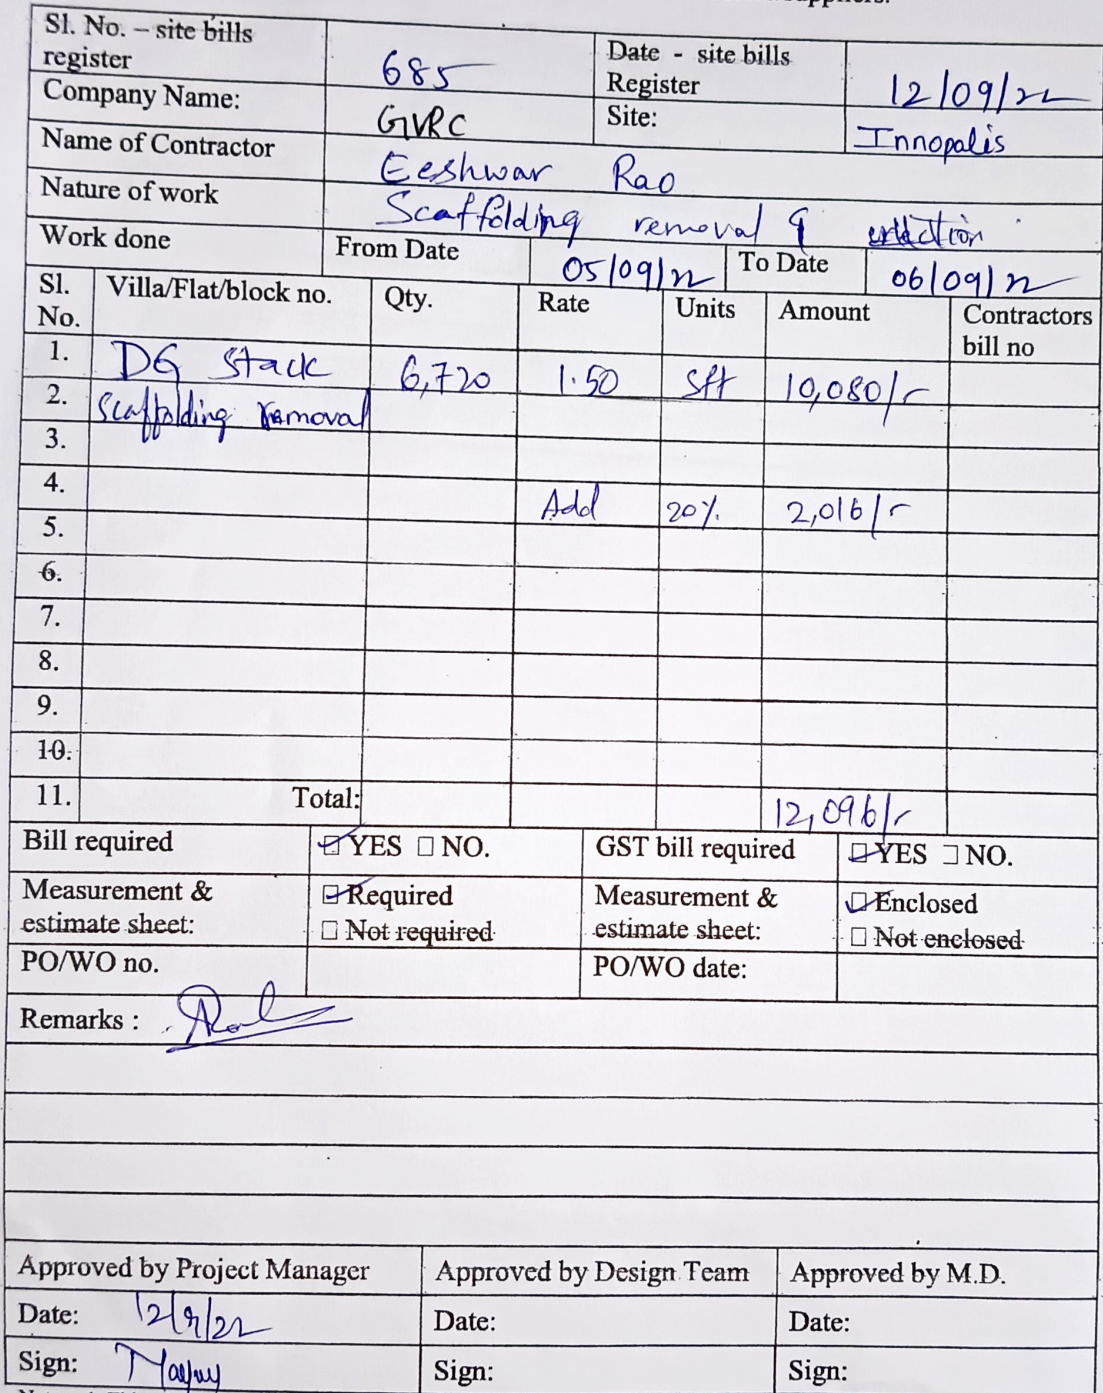 suppliers.
Sl. No. – site bills register 685 Date - site bills Register 12/09/22
Company Name: GVRC Site: Innopalis
Name of Contractor Eeshwar Rao
Nature of work Scaffolding removal & erection
Work done From Date 05/09/22 To Date 06/09/22
Sl. No. Villa/Flat/block no. Qty. Rate Units Amount Contractors bill no
1. DG Stack 6,720 1.50 Sft 10,080/-
2. Scaffolding removal
3.
4. Add 20% 2,016/-
5.
6.
7.
8.
9.
10.
11. Total: 12,096/-
Bill required YES NO. GST bill required YES NO.
Measurement & estimate sheet: Required Not required Measurement & estimate sheet: Enclosed Not enclosed
PO/WO no. PO/WO date:
Remarks :
Approved by Project Manager Approved by Design Team Approved by M.D.
Date: 12/9/22 Date: Date:
Sign: Sign: Sign: